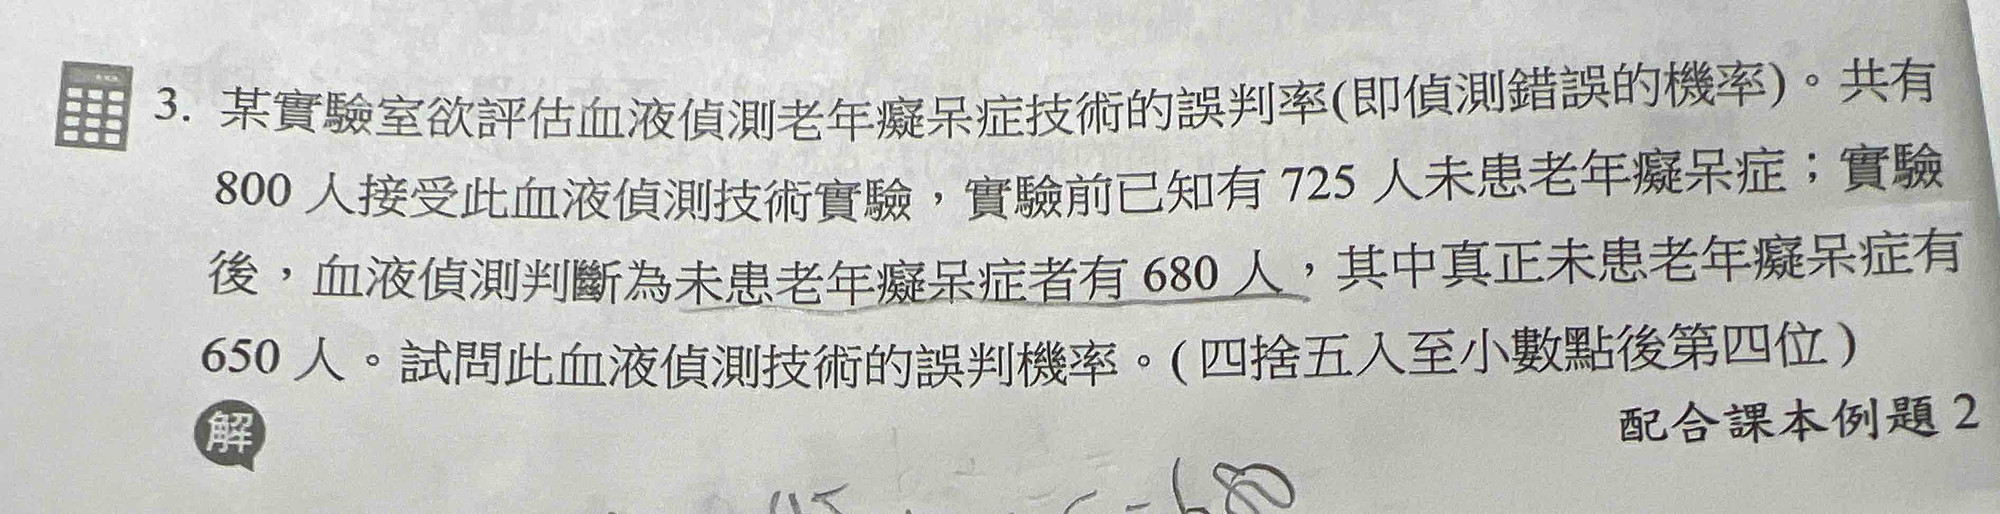 3. 某實驗室欲評估血液偵測老年癡呆症技術的誤判率(即偵測錯誤的機率)。共有
800 人接受此血液偵測技術實驗，實驗前已知有 725 人未患老年癡呆症；實驗
後，血液偵測判斷為未患老年癡呆症者有 680 人，其中真正未患老年癡呆症有
650 人。試問此血液偵測技術的誤判機率。(四捨五入至小數點後第四位)
解
配合課本例題 2